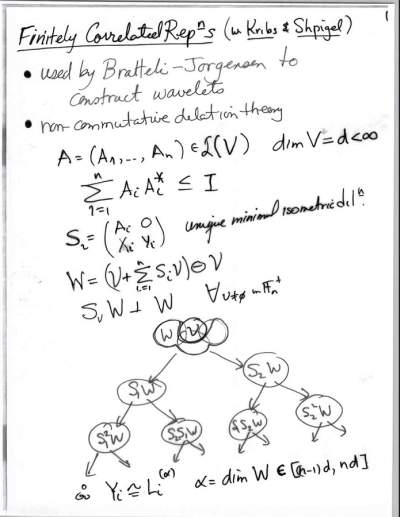 1
Finitely Correlated Repⁿs (w Kribs & Shpigel)
• used by Bratteli-Jorgensen to
construct wavelets
• non-commutative dilation theory
A = (A₁, ..., Aₙ) ∈ L(V) dim V = d < ∞
n
∑ Aᵢ Aᵢ* ≤ I
i=1
Sᵢ = (Aᵢ 0
Xᵢ Yᵢ) unique minimal isometric dilⁿ.
W = (V + ∑ⁿᵢ₌₁ SᵢV) ⊖ V
SᵥW ⊥ W ∀ v ≠ ø in 𝔽ₙ⁺
W V
S₁W S₂W
S₁²W S₂S₁W S₁S₂W S₂²W
∞ Yᵢ ≅ Lᵢ⁽ᵅ⁾ α = dim W ∈ [(n-1)d, nd]